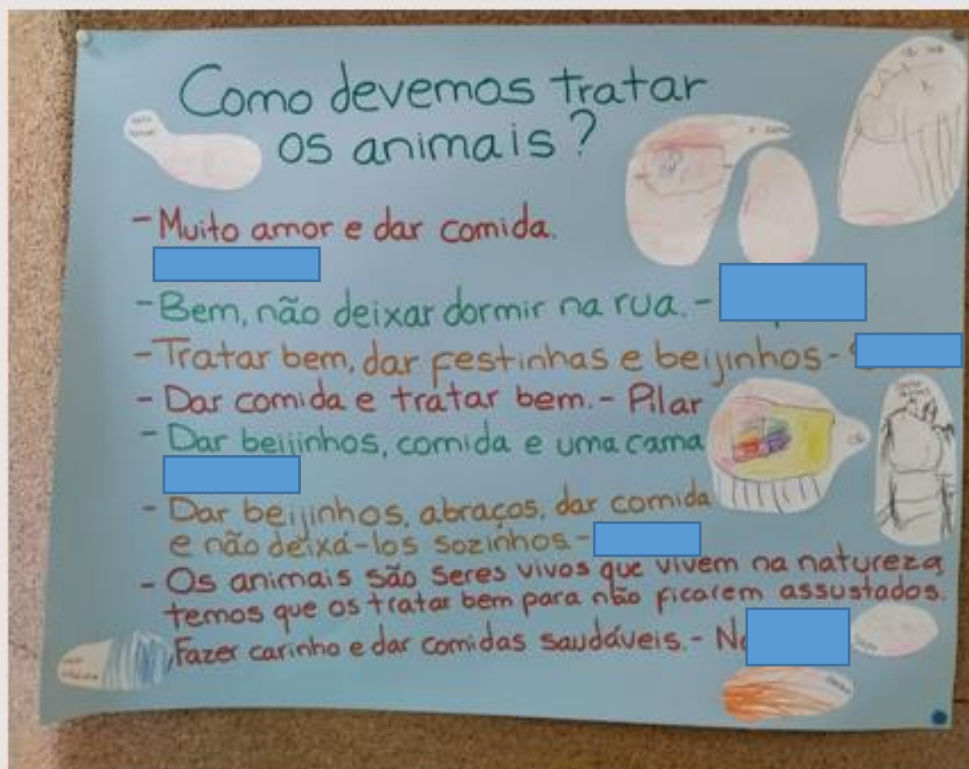 Como devemos tratar
os animais?
- Muito amor e dar comida.
- Bem, não deixar dormir na rua. -
- Tratar bem, dar festinhas e beijinhos -
- Dar comida e tratar bem. - Pilar
- Dar beijinhos, comida e uma cama
- Dar beijinhos, abraços, dar comida
e não deixá-los sozinhos -
- Os animais são seres vivos que vivem na natureza,
temos que os tratar bem para não ficarem assustados.
Fazer carinho e dar comidas saudáveis. -